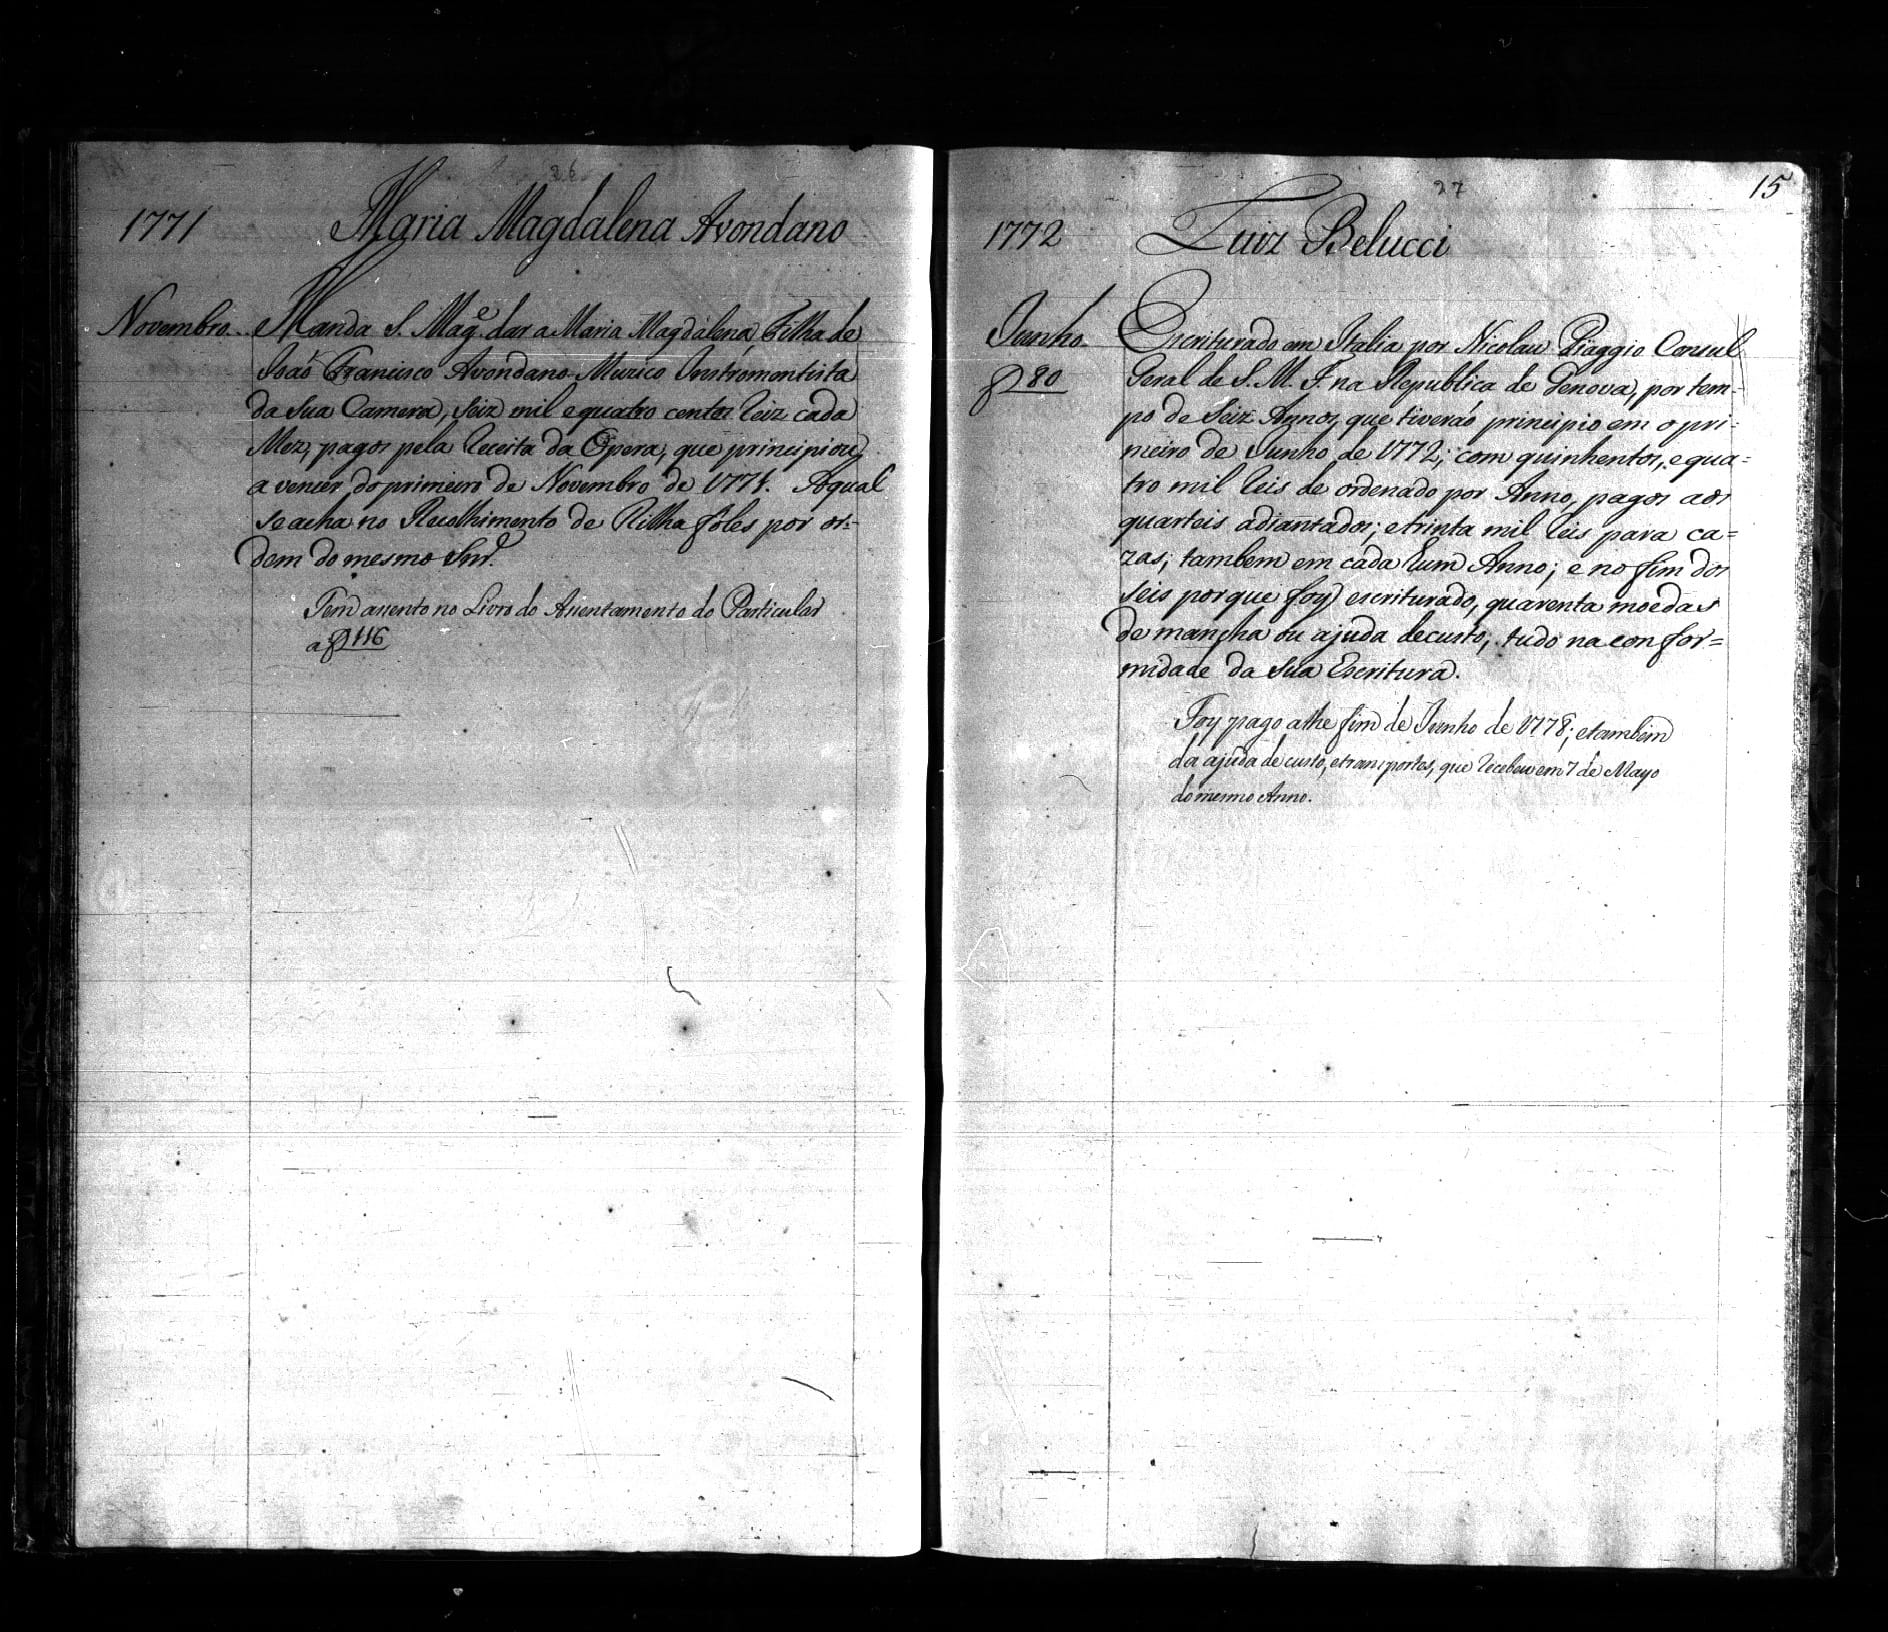 26
1771 Maria Magdalena Avondano
Novembro. Manda S. Mag.e dar a Maria Magdalena, Filha de
João Francisco Avondano Muzico Instromentista
da sua Camera, seiz mil e quatro centos reiz cada
Mez, pagos pela receita da Opera, que principiou
a vencer do primeiro de Novembro de 1771. A qual
se acha no Recolhimento de Rilha foles por or=
dem do mesmo Snr.
Tem assento no Livro do Assentamento do Particular
a f 116
27
15
1772 Luiz Belucci
Junho Escriturado em Italia por Nicolau Piaggio Consul
f 80 Geral de S. M. F. na Republica de Genova, por tem=
po de seiz Annos, que tiverão principio em o pri=
meiro de Junho de 1772; com quinhentos, e qua=
tro mil reis de ordenado por Anno, pagos aos
quarteis adiantados; e trinta mil reis para ca=
zas; tambem em cada hum Anno; e no fim dos
seis porque foy escriturado, quarenta moedas
de mancha ou ajuda de custo; tudo na confor=
midade da sua Escritura.
Foy pago athe fim de Junho de 1778; e tambem
da ajuda de custo, e transportes, que recebeu em 7 de Mayo
do mesmo Anno.